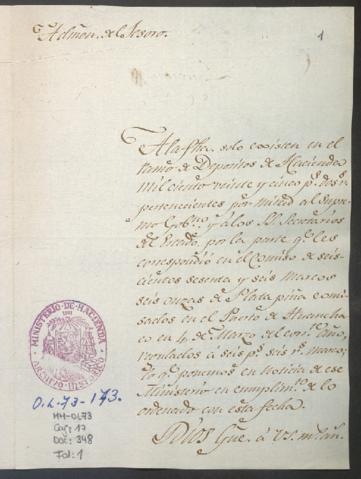 Admōn. del Tesoro.
1
A la fha. solo existen en el
ramo de Depositos de Hacienda
mil ciento veinte y cinco ps. dos rs.
pertenecientes por mitad al Supre-
mo Gobno. y á los SS. Secretarios
de Estado, por la parte qe. les
correspondió en el comiso de seis-
cientos sesenta y seis Marcos
seis onzas de Plata piña comi-
sados en el Pto. de Huancha
co en 4 de Marzo del corrte. año,
regulados á seis ps. seis rs. marco;
lo qe. ponemos en noticia de ese
Ministerio en cumplimto. de lo
ordenado con esta fecha.
Dios Gue. á VS. ms. as.
MINISTERIO DE HACIENDA
O.L.73-173.
MH-OL73
Caj: 17
Doc: 348
Fol: 1